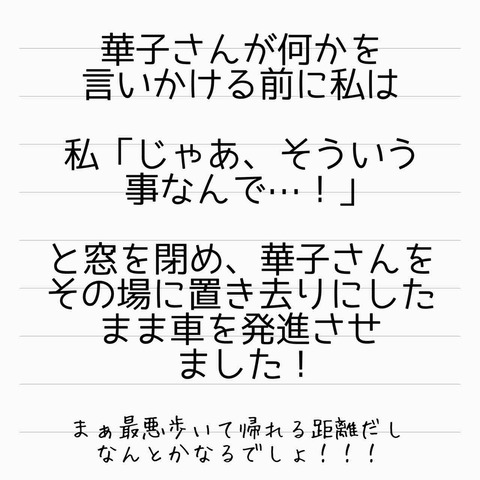 華子さんが何かを
言いかける前に私は
私「じゃあ、そういう
事なんで…！」
と窓を閉め、華子さんを
その場に置き去りにした
まま車を発進させ
ました！
まぁ最悪歩いて帰れる距離だし
なんとかなるでしょ！！！